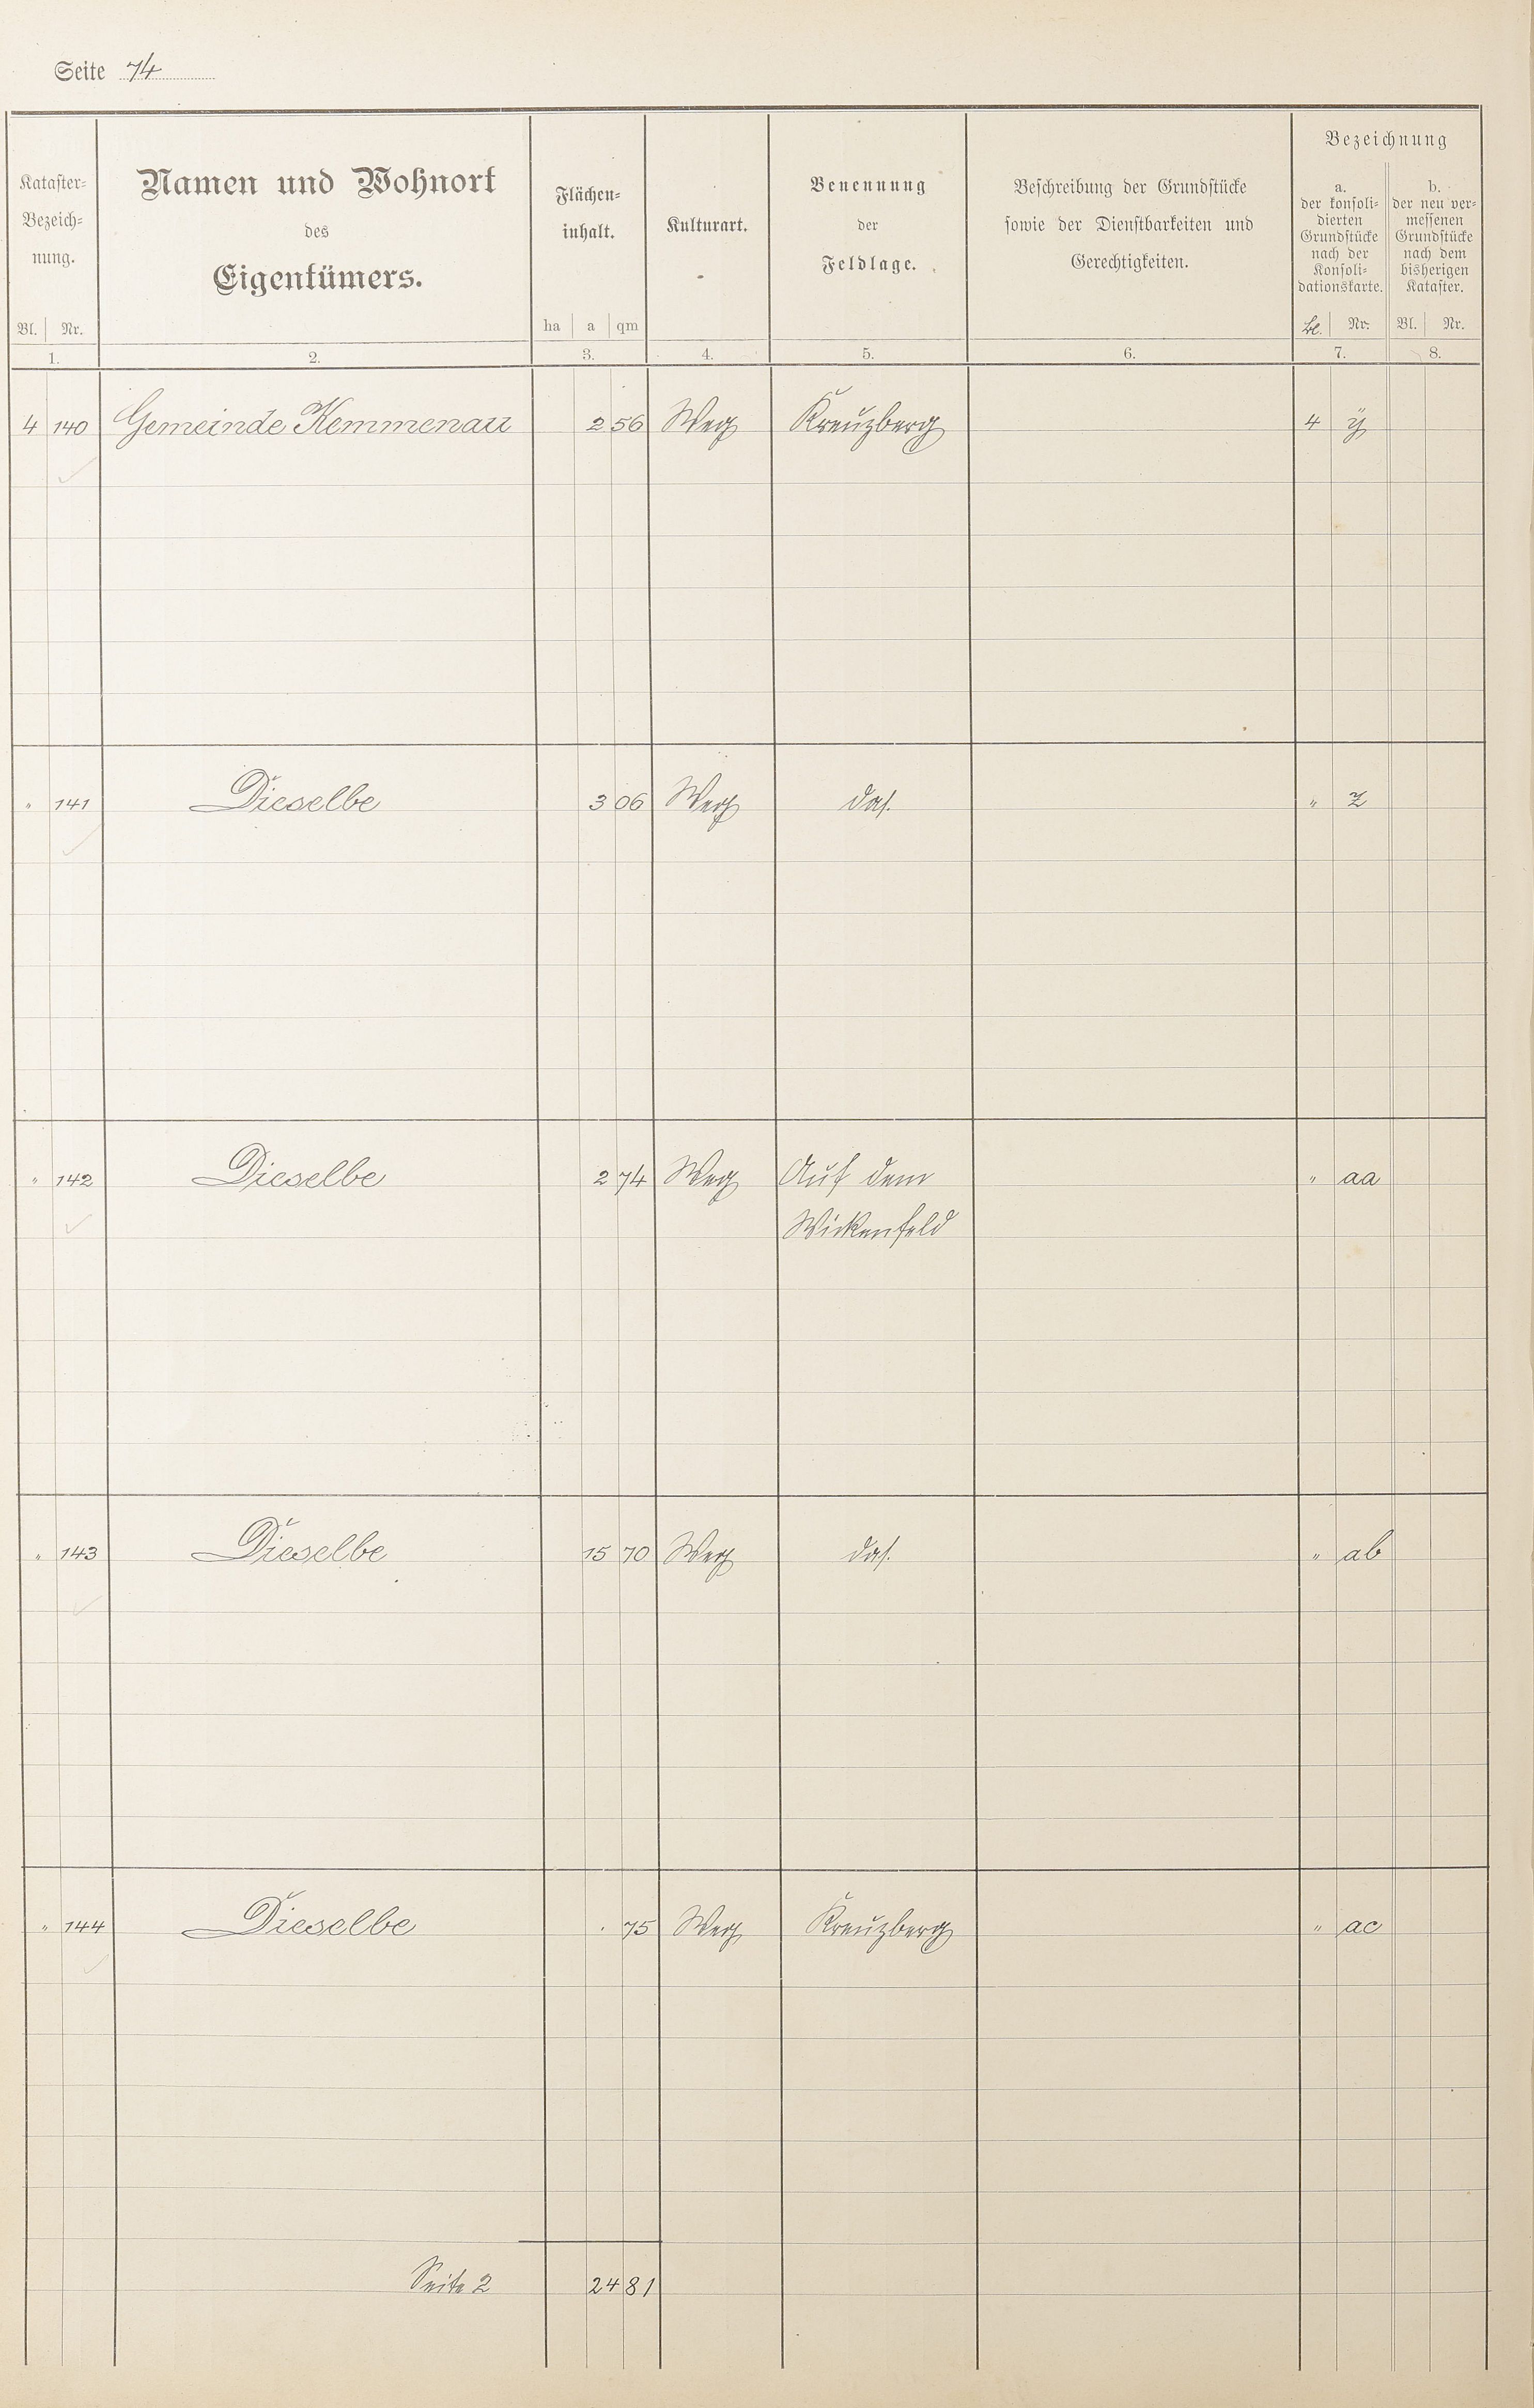 Seite 74
Kataster-
Bezeich-
nung.
Bl. Nr.
1.
Namen und Wohnort
des
Eigentümers.
2.
Flächen-
inhalt.
ha a qm
3.
Kulturart.
4.
Benennung
der
Feldlage.
5.
Beschreibung der Grundstücke
sowie der Dienstbarkeiten und
Gerechtigkeiten.
6.
Bezeichnung
a.
der konsoli-
dierten
Grundstücke
nach der
Konsoli-
dationskarte.
Bl. Nr.
7.
b.
der neu ver-
messenen
Grundstücke
nach dem
bisherigen
Kataster.
Bl. Nr.
8.
4 140 Gemeinde Kemmenau 2 56 Weg Kreuzberg 4 y
" 141 Dieselbe 3 06 Weg das. " z
" 142 Dieselbe 2 74 Weg Auf dem " aa
Wickenfeld
" 143 Dieselbe 15 70 Weg das. " ab
" 144 Dieselbe . 75 Weg Kreuzberg " ac
Seite 2 24 81